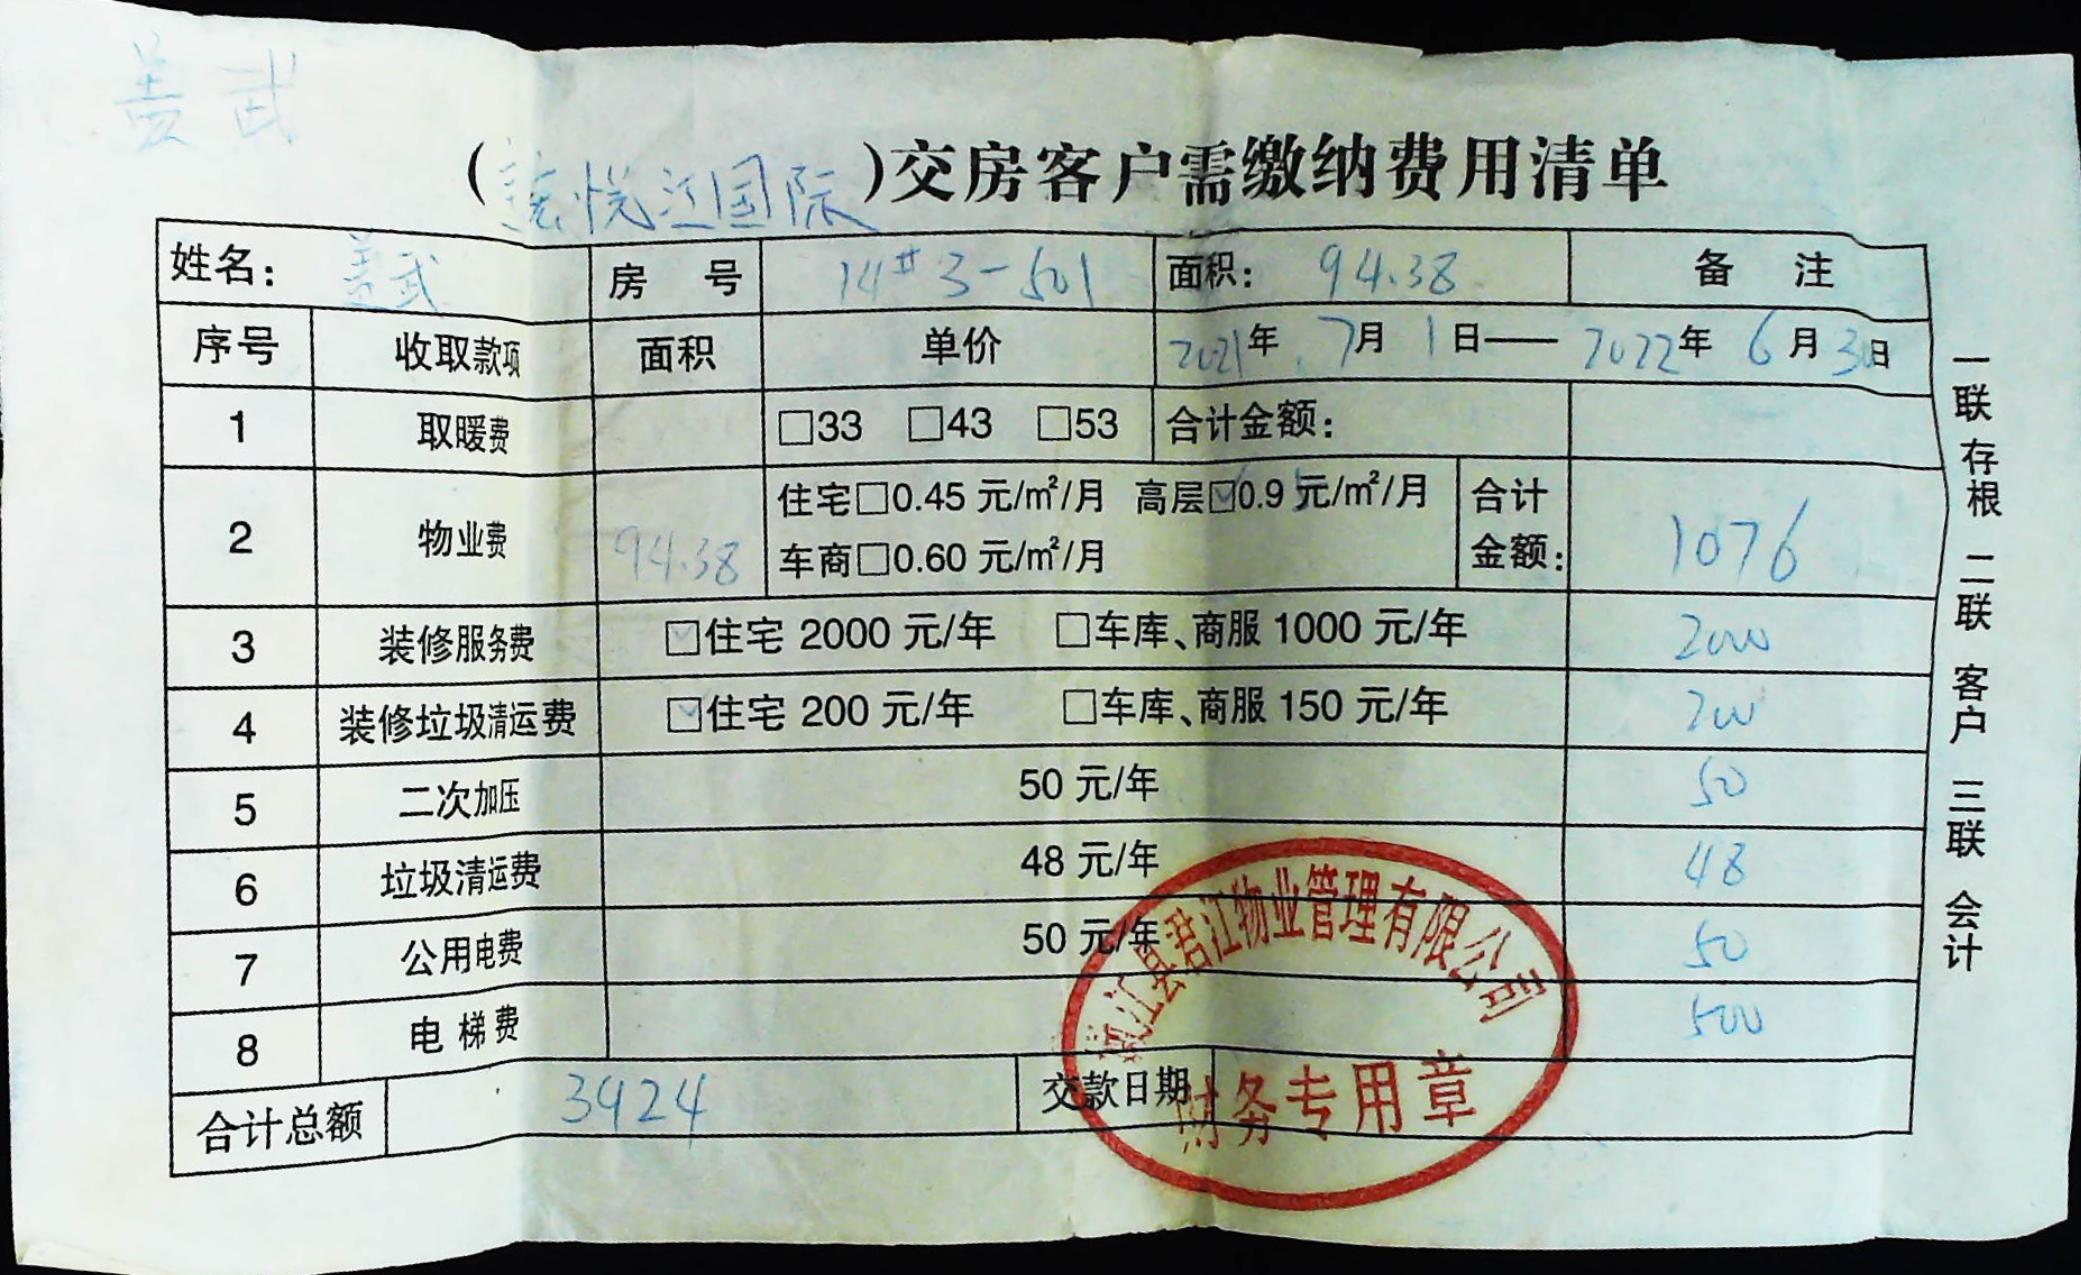 盖武
(悦江国际)交房客户需缴纳费用清单
姓名: 盖武 房 号 14#3-501 面积: 94.38 备 注
序号 收取款项 面积 单价 2021年 7月 1日——2022年 6月30日
1 取暖费 □33 □43 □53 合计金额:
2 物业费 94.38 住宅□0.45 元/㎡/月 高层☑0.9 元/㎡/月 合计
车商□0.60 元/㎡/月 金额: 1076
3 装修服务费 ☑住宅 2000 元/年 □车库、商服 1000 元/年 2000
4 装修垃圾清运费 ☑住宅 200 元/年 □车库、商服 150 元/年 200
5 二次加压 50 元/年 50
6 垃圾清运费 48 元/年 48
7 公用电费 50 元/年 50
8 电梯费 500
合计总额 3924 交款日期
江县君江物业管理有限公司
财务专用章
一联存根 二联客户 三联会计